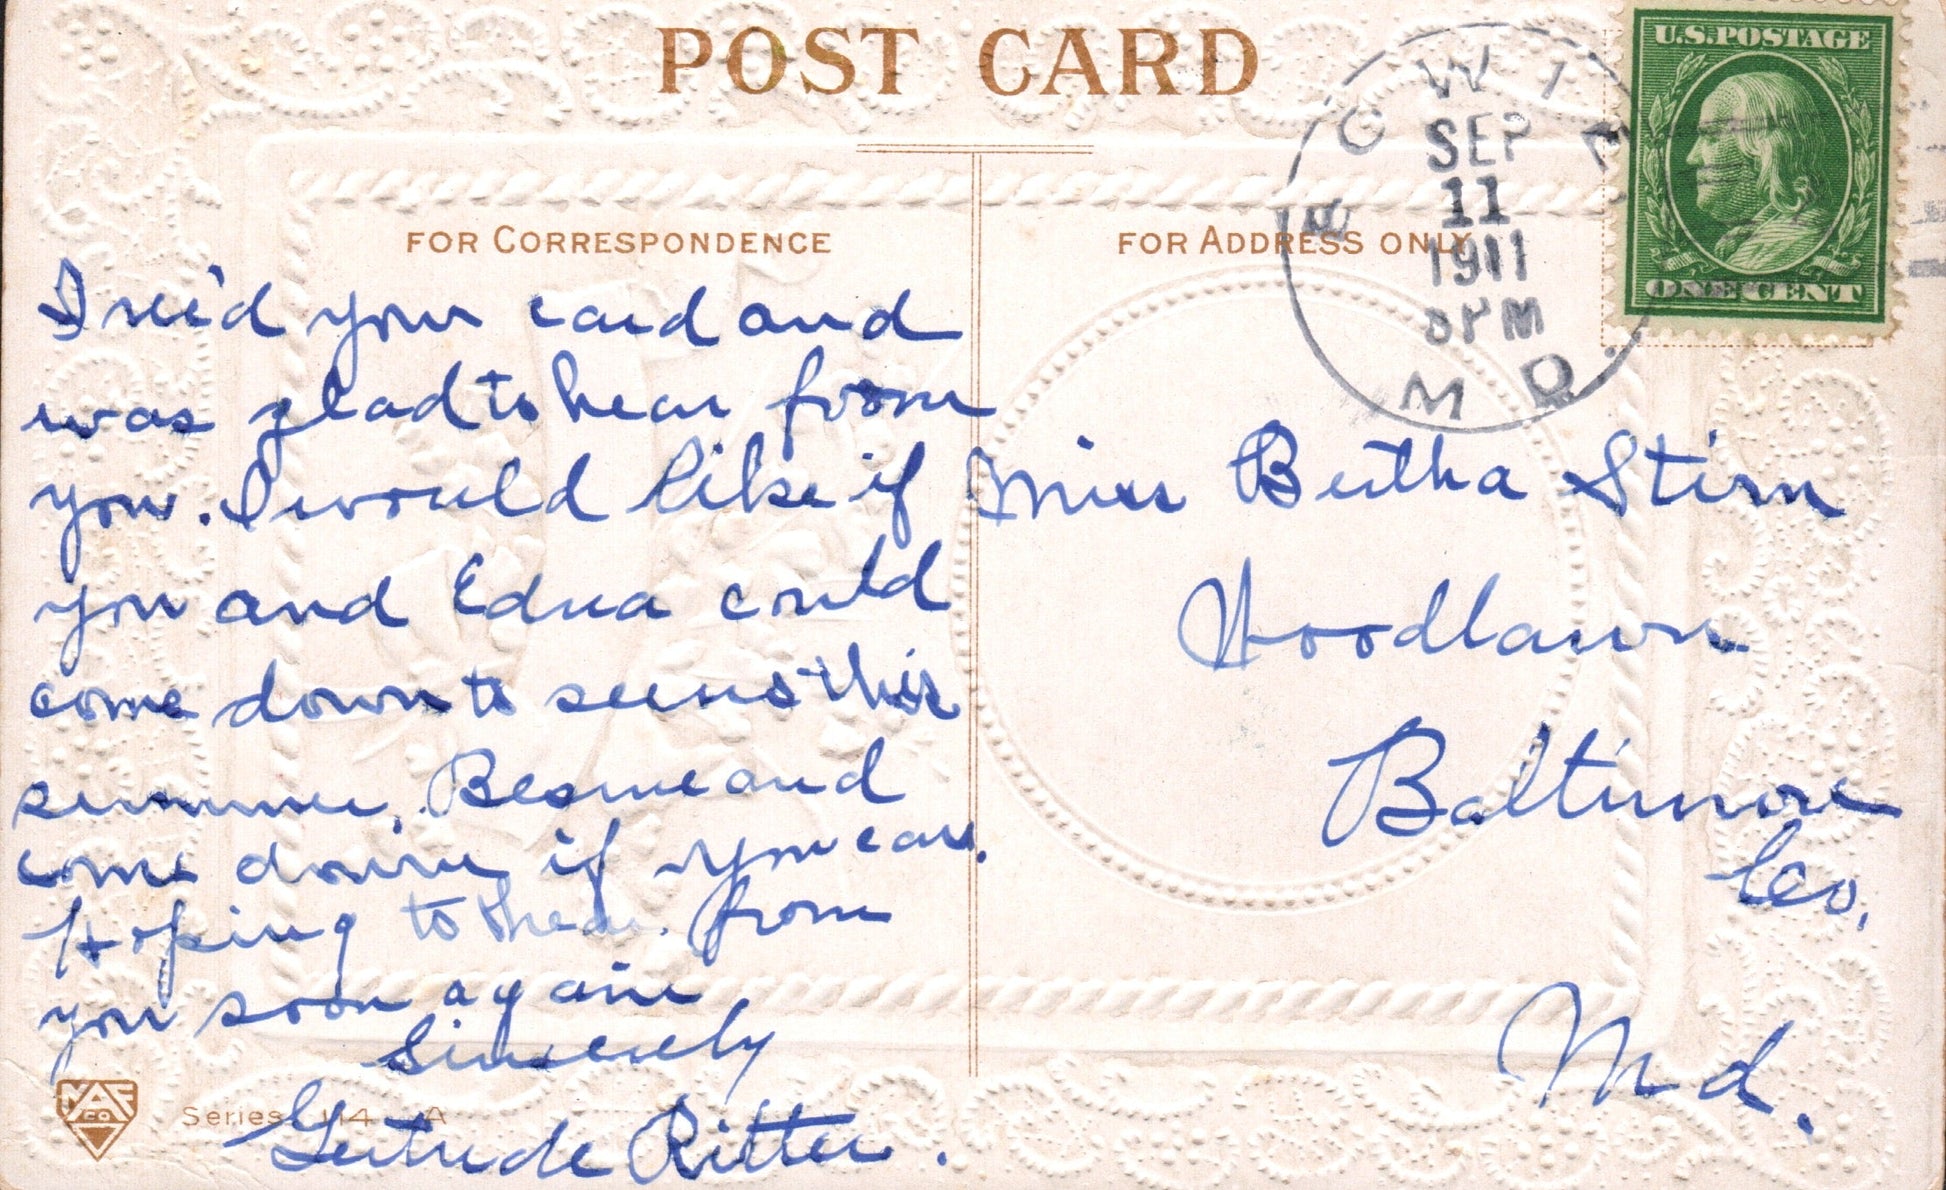 POST CARD
FOR CORRESPONDENCE
I rec'd your card and
was glad to hear from
you. I would like if
you and Edna could
come down to see us this
summer. Be sure and
come down if you can.
Hoping to hear from
you soon again
Sincerely
Gertrude Ritter.
MAF
CO
Series 114 A
FOR ADDRESS ONLY
SEP
11
1911
PM
MD.
U.S. POSTAGE
ONE CENT
Miss Bertha Stirn
Woodlawn
Baltimore
Co.
Md.